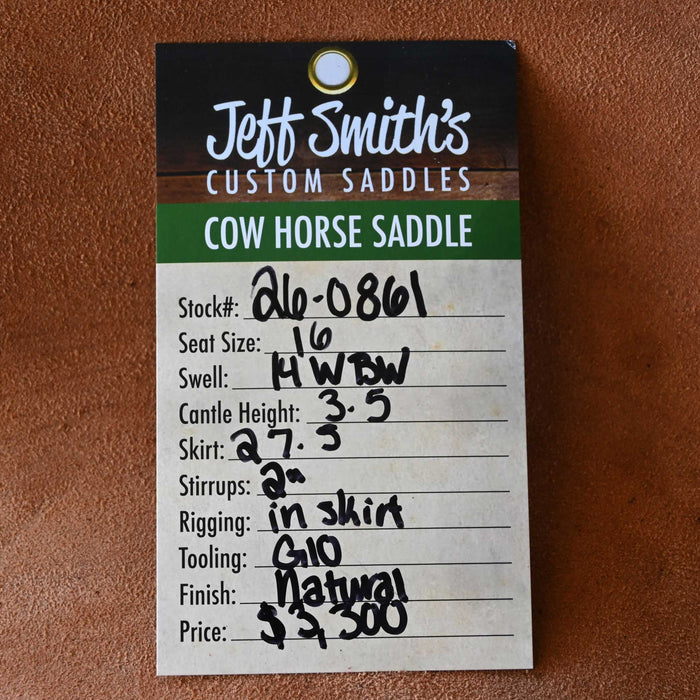 Jeff Smith's
CUSTOM SADDLES
COW HORSE SADDLE
Stock#: 26-0861
Seat Size: 16
Swell: 14 W BW
Cantle Height: 3.5
Skirt: 27.5
Stirrups: 2"
Rigging: in skirt
Tooling: G10
Finish: Natural
Price: $3,300